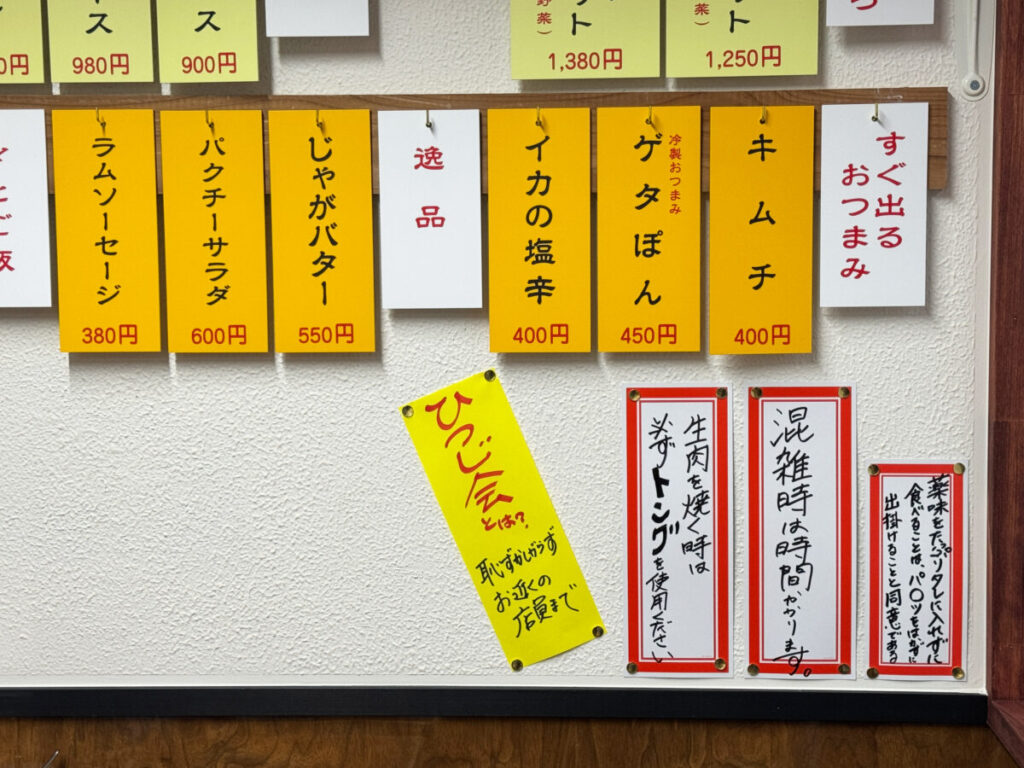 ット
薬)
1,250円
ット
野菜)
1,380円
ス
900円
ース
980円
0円
すぐ出る
おつまみ
キムチ
400円
冷製おつまみ
ゲタぽん
450円
イカの塩辛
400円
逸品
じゃがバター
550円
パクチーサラダ
600円
ラムソーセージ
380円
薬味をたっぷりタレに入れずに
食べることは、パ〇ツをはかずに
出掛けることと同意である
混雑時は時間かかります。
生肉を焼く時は
必ずトングを使用ください
ひつじ会
とは?
恥ずかしがらず
お近くの
店員まで